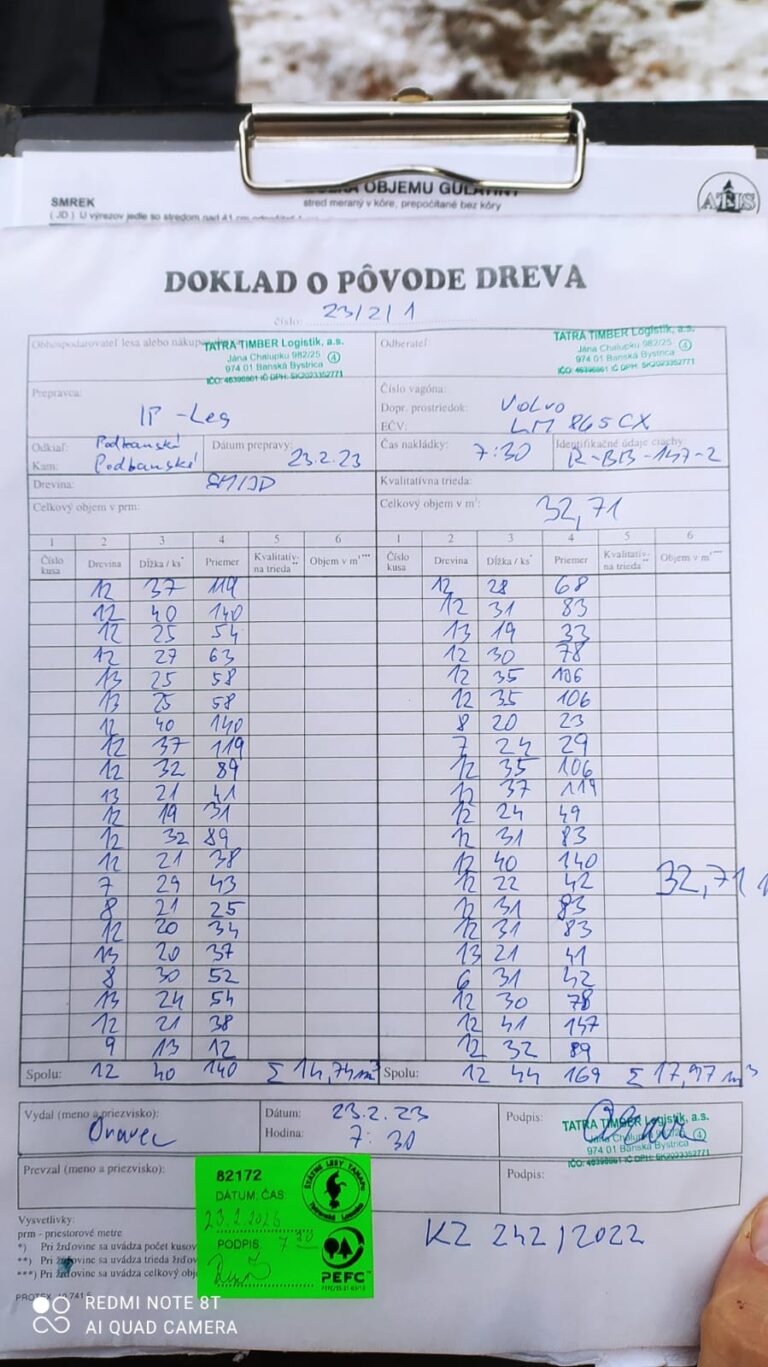 SMREK
OBJEMU GUĽATINY
stred meraný v kôre, prepočítané bez kôry
ATIS
DOKLAD O PÔVODE DREVA
číslo: 23/2/1
Obhospodarovateľ lesa alebo nákup
TATRA TIMBER Logistik, a.s.
Jána Chalupku 982/25
974 01 Banská Bystrica
4
Odberateľ:
TATRA TIMBER Logistik, a.s.
Jána Chalupku 982/25
974 01 Banská Bystrica
4
Prepravca:
IP-Les
Číslo vagóna:
Dopr. prostriedok: Volvo
EČV: LM 865CX
Odkiaľ: Podbanské
Kam: Podbanské
Dátum prepravy: 23.2.23
Čas nakládky: 7:30
Identifikačné údaje ciachy:
R-BB-147-2
Drevina: SM/JD
Kvalitatívna trieda:
Celkový objem v prm:
Celkový objem v m³: 32,71
1 2 3 4 5 6 1 2 3 4 5 6
Číslo kusa Drevina Dĺžka / ks* Priemer Kvalitatív- na trieda** Objem v m³*** Číslo kusa Drevina Dĺžka / ks* Priemer Kvalitatív- na trieda** Objem v m³***
12 37 119 12 28 68
12 40 140 12 31 83
12 25 54 13 19 33
12 27 63 12 30 78
13 25 58 12 35 106
13 25 58 12 35 106
12 40 140 8 20 23
12 37 119 7 24 29
12 32 89 12 35 106
13 21 41 12 37 119
12 19 31 12 24 49
12 32 89 12 31 83
12 21 38 12 40 140
7 29 43 12 22 42
32,71
8 21 25 12 31 83
12 20 34 12 31 83
13 20 37 13 21 41
8 30 52 6 31 42
13 24 54 12 30 78
12 21 38 12 41 147
9 13 12 12 32 89
Spolu: 12 40 140 Σ 14,74m³ Spolu: 12 44 169 Σ 17,97m³
Vydal (meno a priezvisko):
Oravec
Dátum: 23.2.23
Hodina: 7:30
Podpis:
TATRA TIMBER Logistik, a.s.
Jána Chalupku 982/25
974 01 Banská Bystrica
4
Prevzal (meno a priezvisko):
Podpis:
82172
DÁTUM, ČAS
PODPIS 7 30
ŠTÁTNE LESY TANAPU
PEFC™
KZ 242/2022
Vysvetlivky:
prm - priestorové metre
*) Pri žrďovine sa uvádza počet kusov
**) Pri žrďovine sa uvádza trieda
***) Pri žrďovine sa uvádza celkový
REDMI NOTE 8T
AI QUAD CAMERA